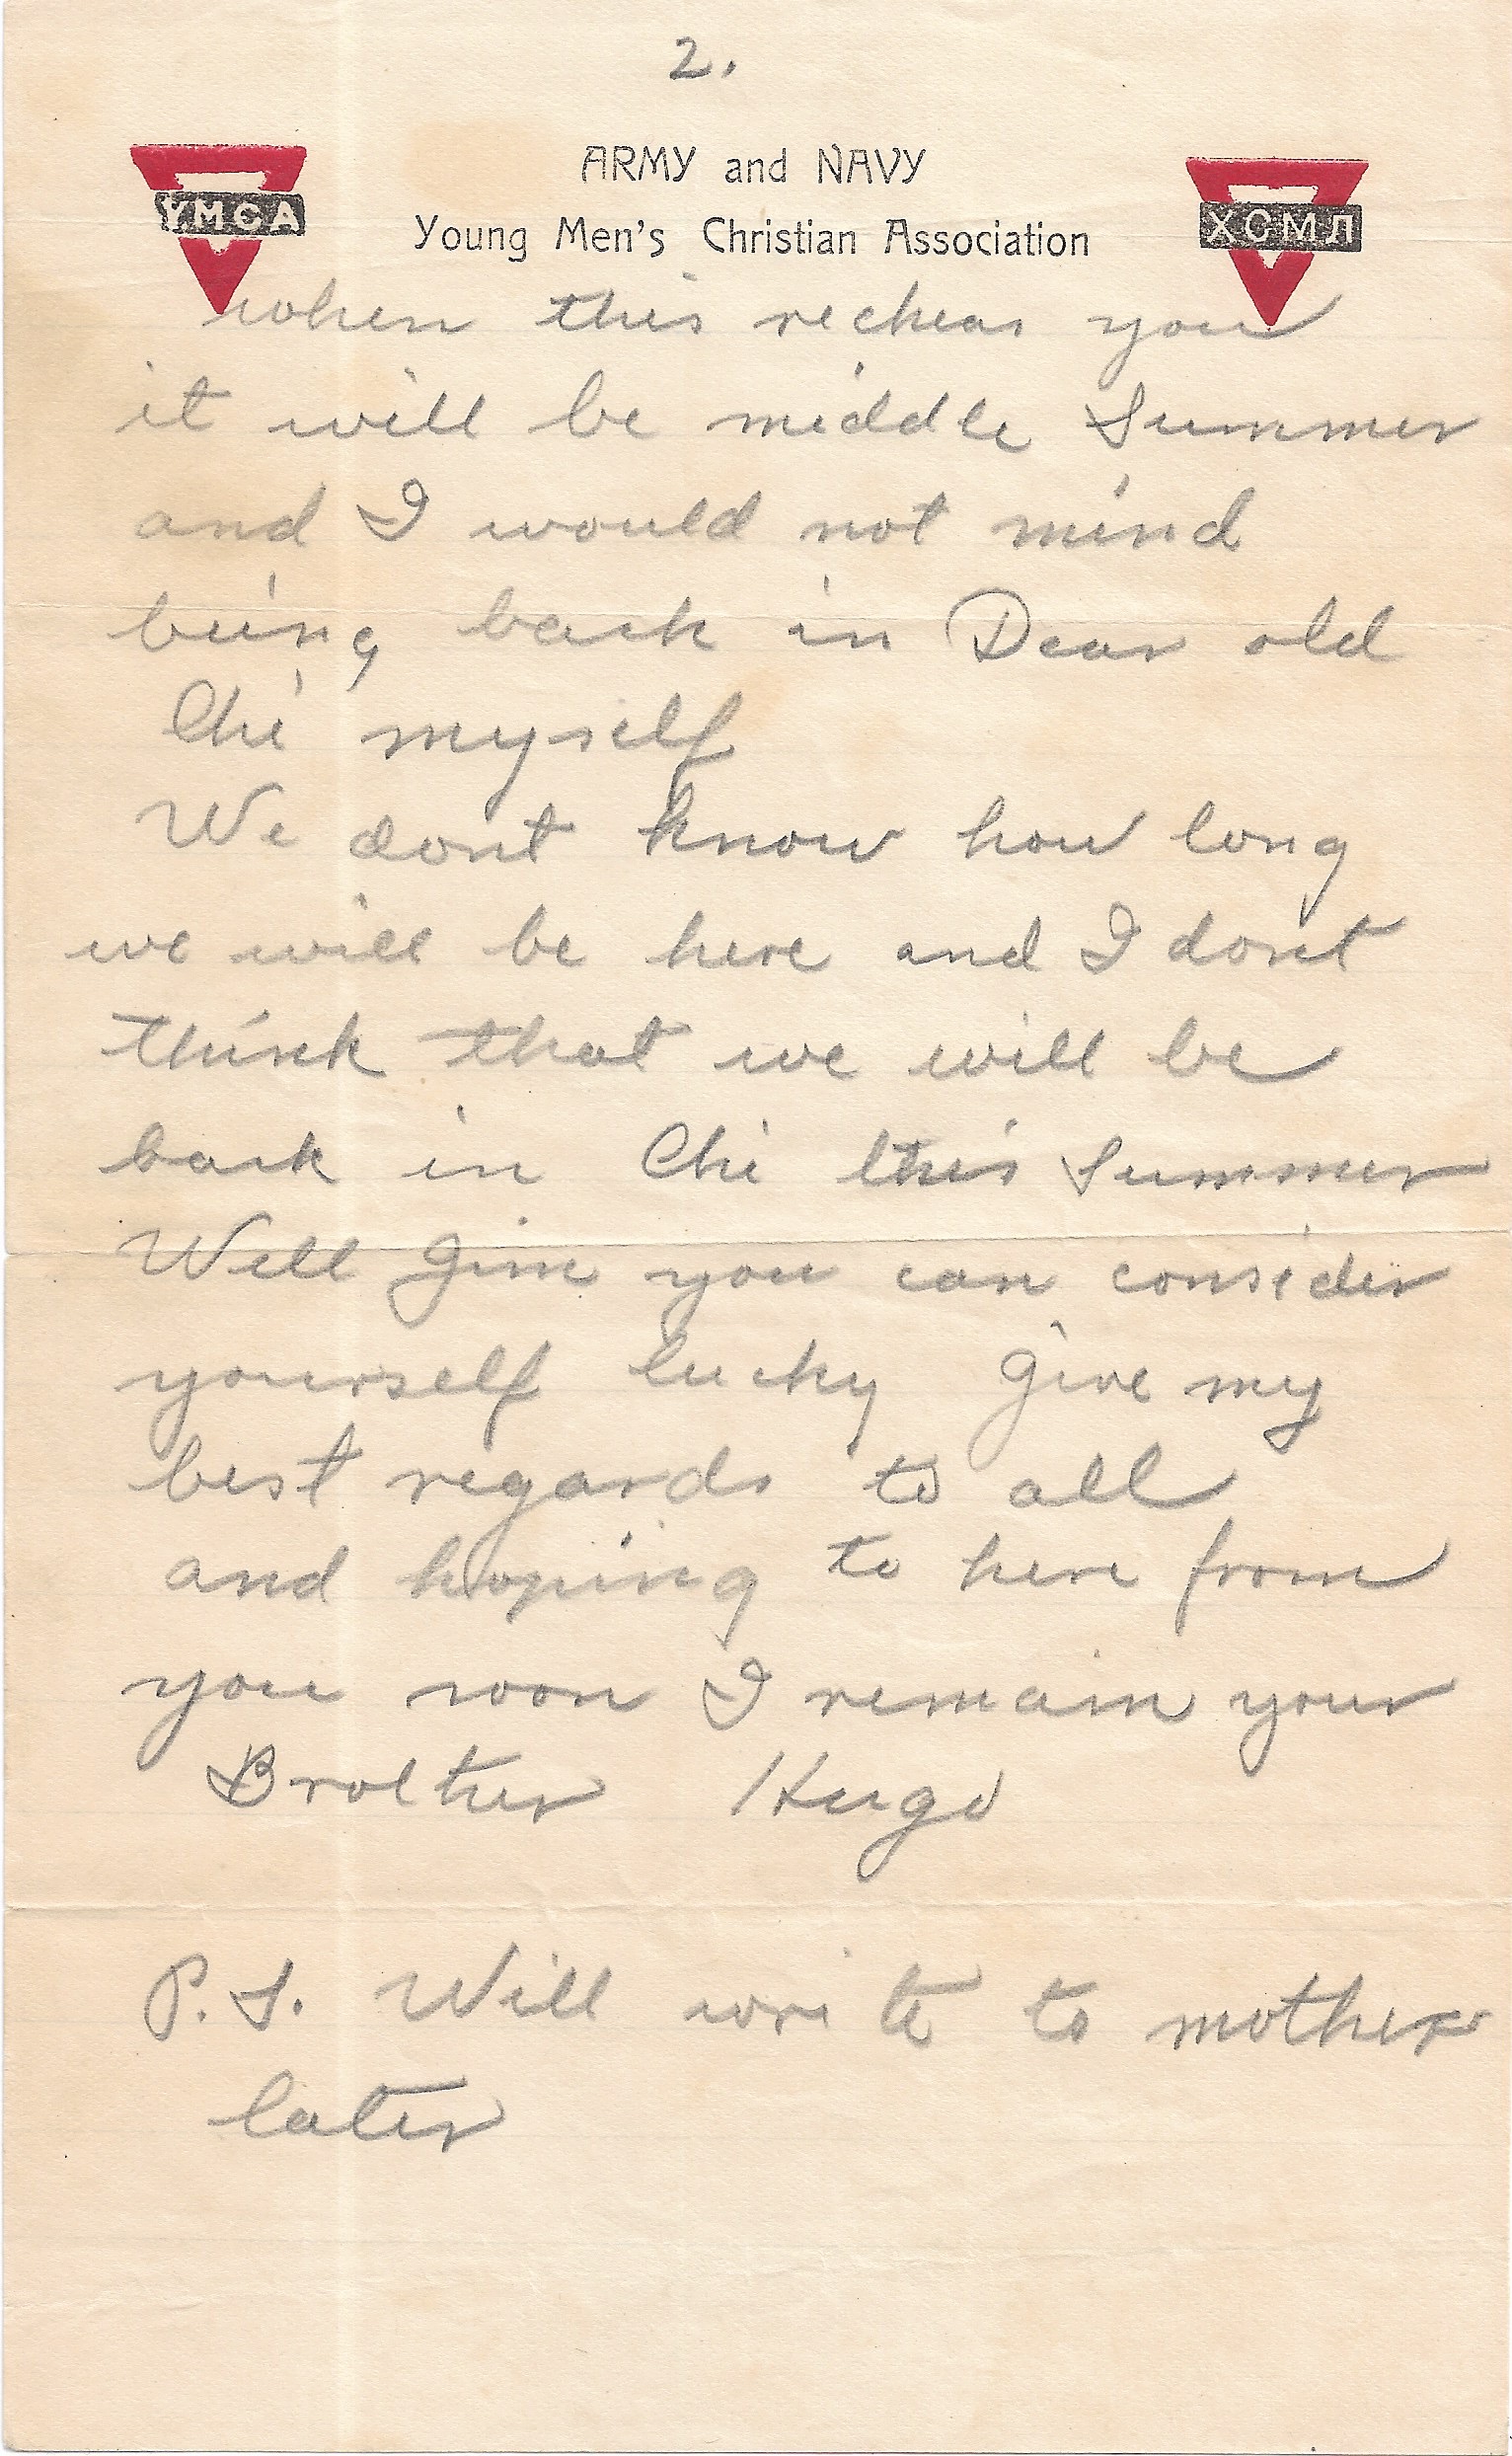 2.
ARMY and NAVY
YMCA
ХСМЛ
Young Men's Christian Association
when this recheas you
it will be middle Summer
and I would not mind
being back in Dear old
Chi myself
We dont know how long
we will be here and I dont
think that we will be
back in Chi this Summer
Well Jim you can consider
yourself lucky Give my
best regards to all
and hoping to here from
you soon I remain your
Brother Hugo
P.S. Will write to mother
later